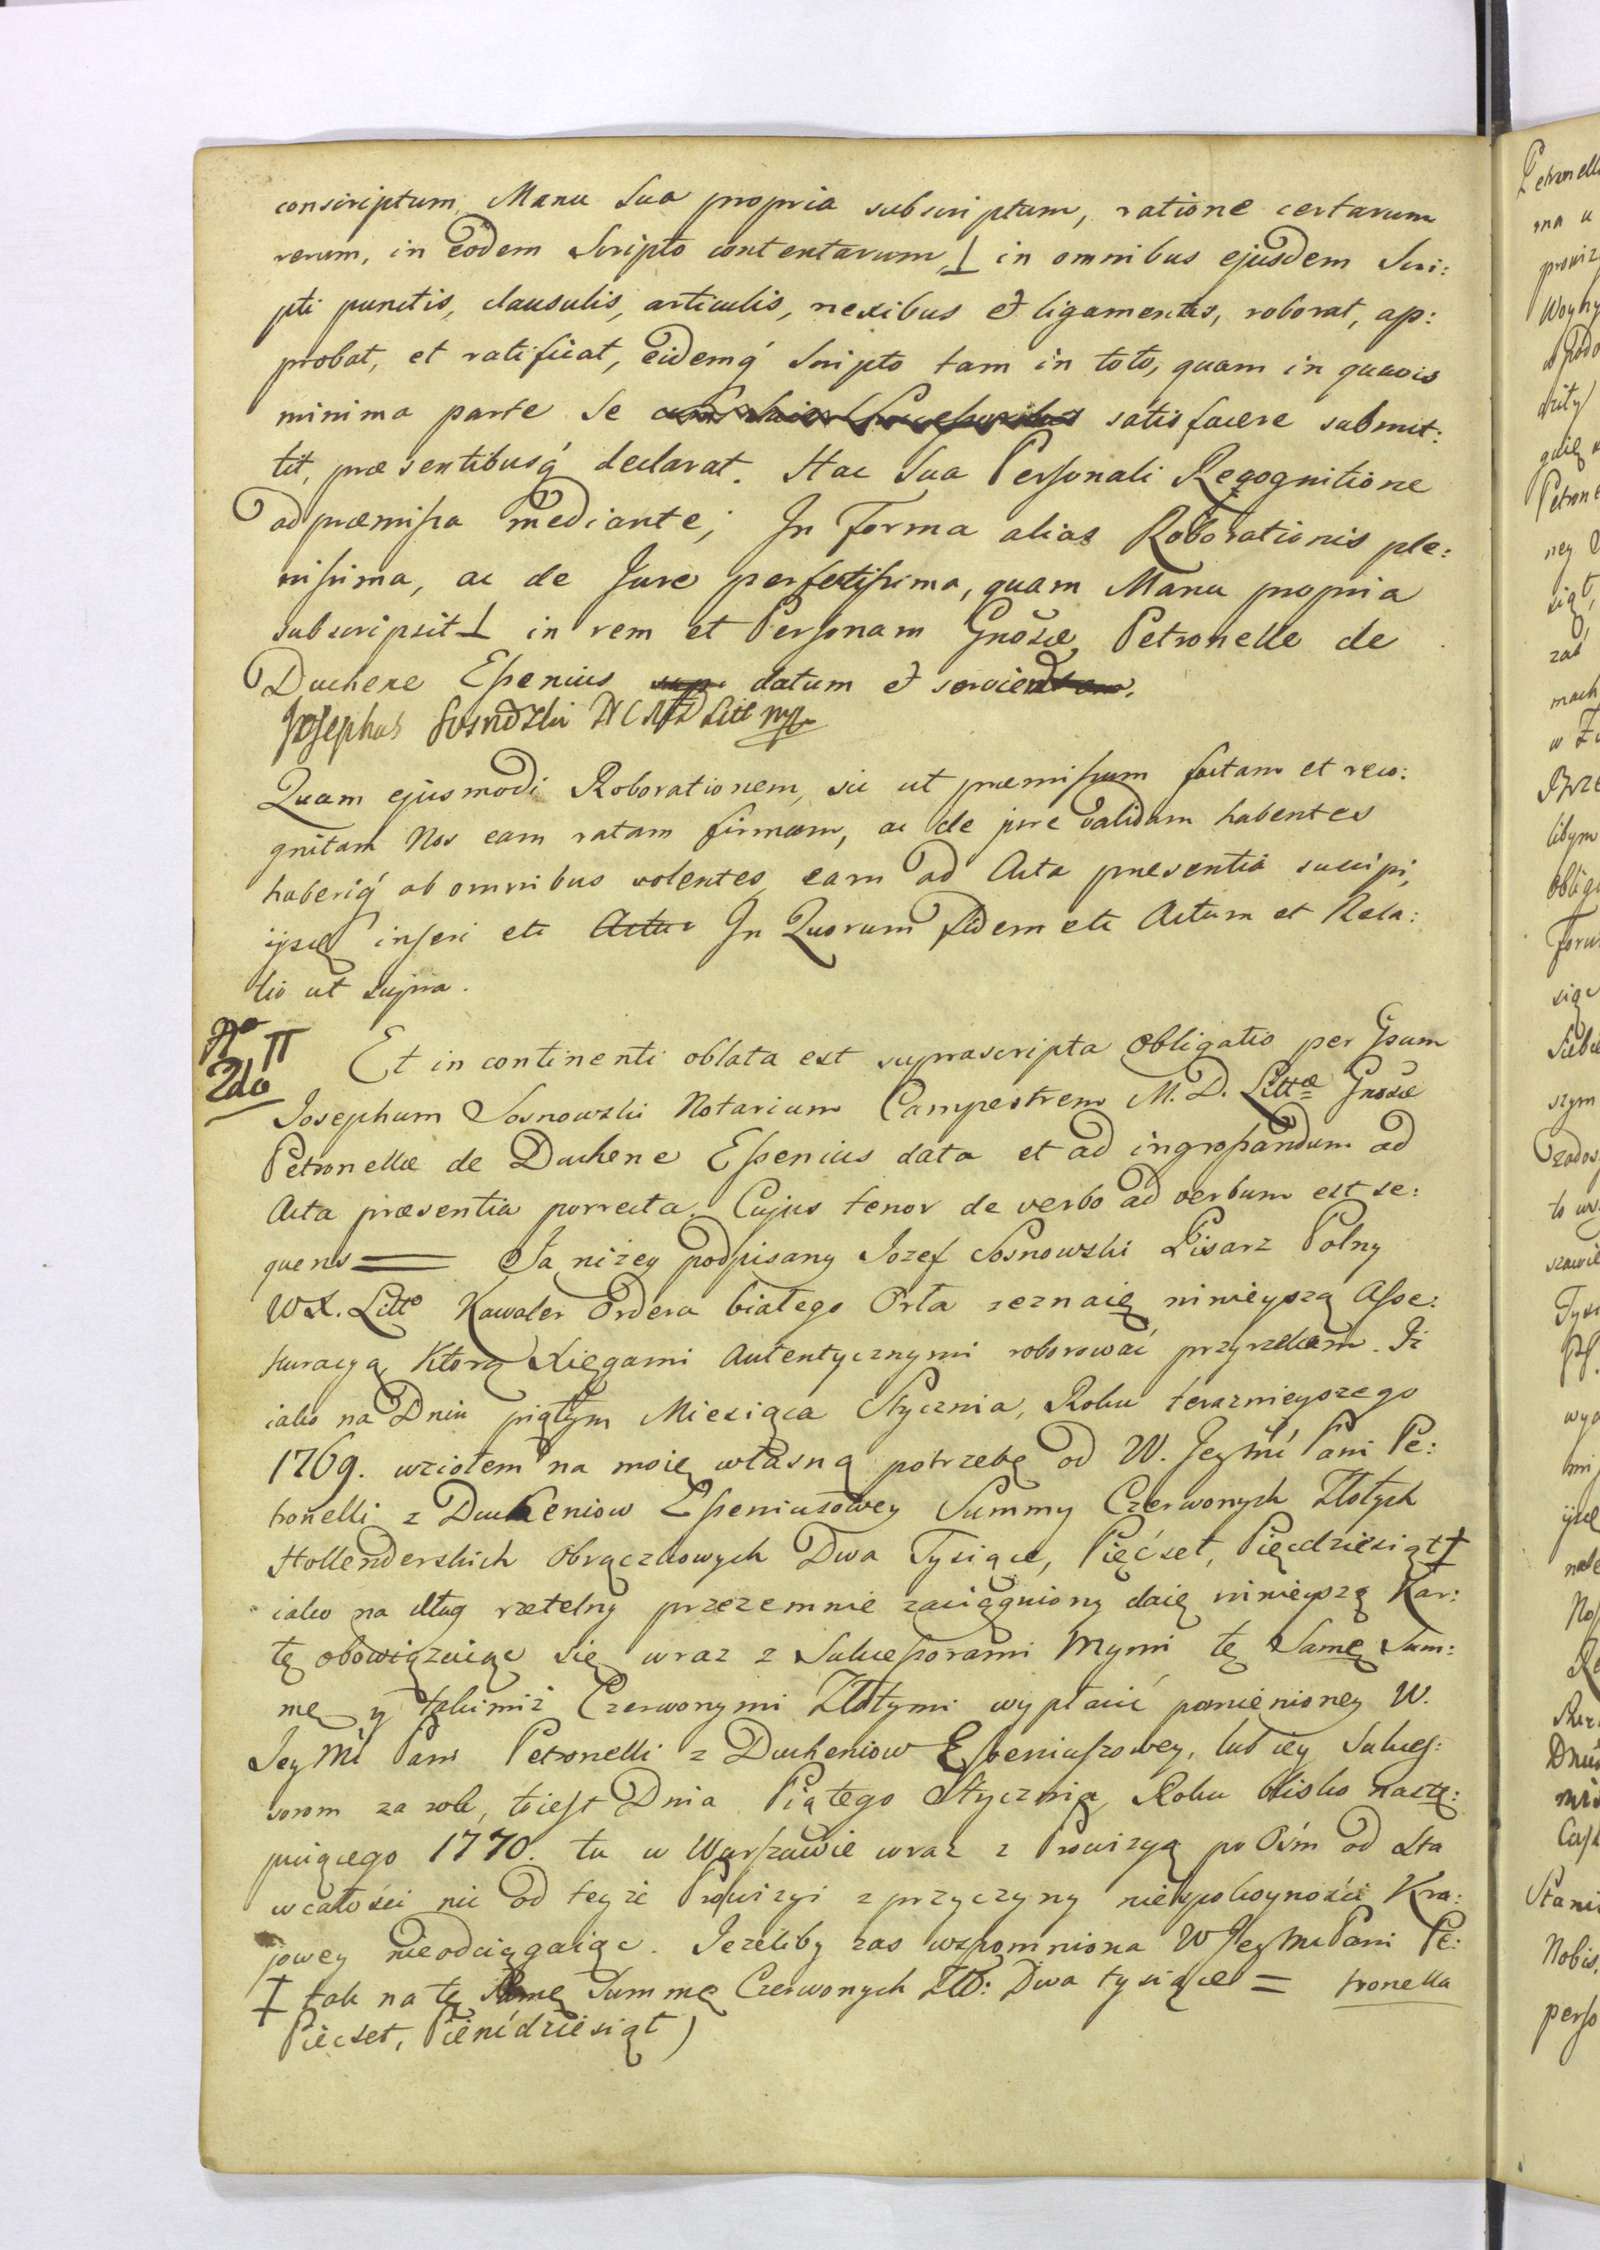 conscriptum, Manu Sua propria subscriptum, ratione certarum
rerum, in eodem Scripto contentarum, ⊥ in omnibus ejusdem Scri:
pti punctis, clausulis, articulis, nexibus et ligamentis, roborat, ap:
probat, et ratificat, eidemq́ Scripto tam in toto, quam in quavis
minima parte Se satisfacere submit:
tit, præsentibusq́ declarat. Hac Sua Personali Recognitione
ad præmissa mediante; In Forma alias Roborationis ple:
nissima, ac de Jure perfectissima, quam Manu propria
subscripsit ⊥ in rem et Personam Gnosæ Petronellæ de
Duchene Essenius datum et servien
Josephus Sosnowski NCMD Litt mp
Quam ejusmodi Roborationem, sic ut præmissum factam et reco:
gnitam Nos eam ratam firmam, ac de jure validam habentes
haberiq́ ab omnibus volentes, eam ad Acta præsentia suscipi,
ijsq́ inseri etc Actu In Quorum fidem etc Actum et Rela:
tio ut supra.
Nro II
2do
Et in continenti oblata est suprascripta Obligatio per Gsum
Josephum Sosnowski Notarium Campestrem M. D. Littæ Gnosæ
Petronellæ de Duchene Essenius data et ad ingrossandum ad
Acta præsentia porrecta. Cujus tenor de verbo ad verbum est se:
quens == Ja niżey podpisany Jozef Sosnowski Pisarz Polny
W X. Litto Kawaler Ordera białego Orła zeznaię ninieyszą Asse:
kuracyą Ktorą Xięgami Autentycznymi roborować przyrzekam. Iż
iako na Dniu piątym Miesiąca Stycznia, Roku teraznieyszego
1769. wziołem na moię własną potrzebę od W. Jeymć Pani Pe:
tronelli z Duckeniow Esseniusowey Summy Czerwonych Złotych
Hollenderskich Obrączkowych Dwa Tysiące, Pięćset, Pięcdziesiąt ‡
iako na dług rzetelny przezemnie zaciągniony daię ninieyszą Kar:
tę obowiązuiąc się wraz z Sukcessorami Mymi tę Samę Sum:
mę y takimiż Czerwonymi Złotymi wypłacić pomienioney W.
Jey Mć Pani Petronelli z Ducheniow Esseniuszowey, lub iey Sukces:
sorom za rok, toiest Dnia Piątego Stycznia, Roku blisko nastę:
puiącego 1770. tu w Warszawie wraz z Prowizyą po Ośm od Sta
w całości nic od teyże Prowizyi z przyczyny niespokoyności Kra:
jowey nieodciągaiąc. Jeżeliby zas wspomniona W Jeymć Pani Pe:
‡ tak na tę Samę Summę Czerwonych Złł: Dwa tysiące = tronella
Piecset, Piędziesiąt)